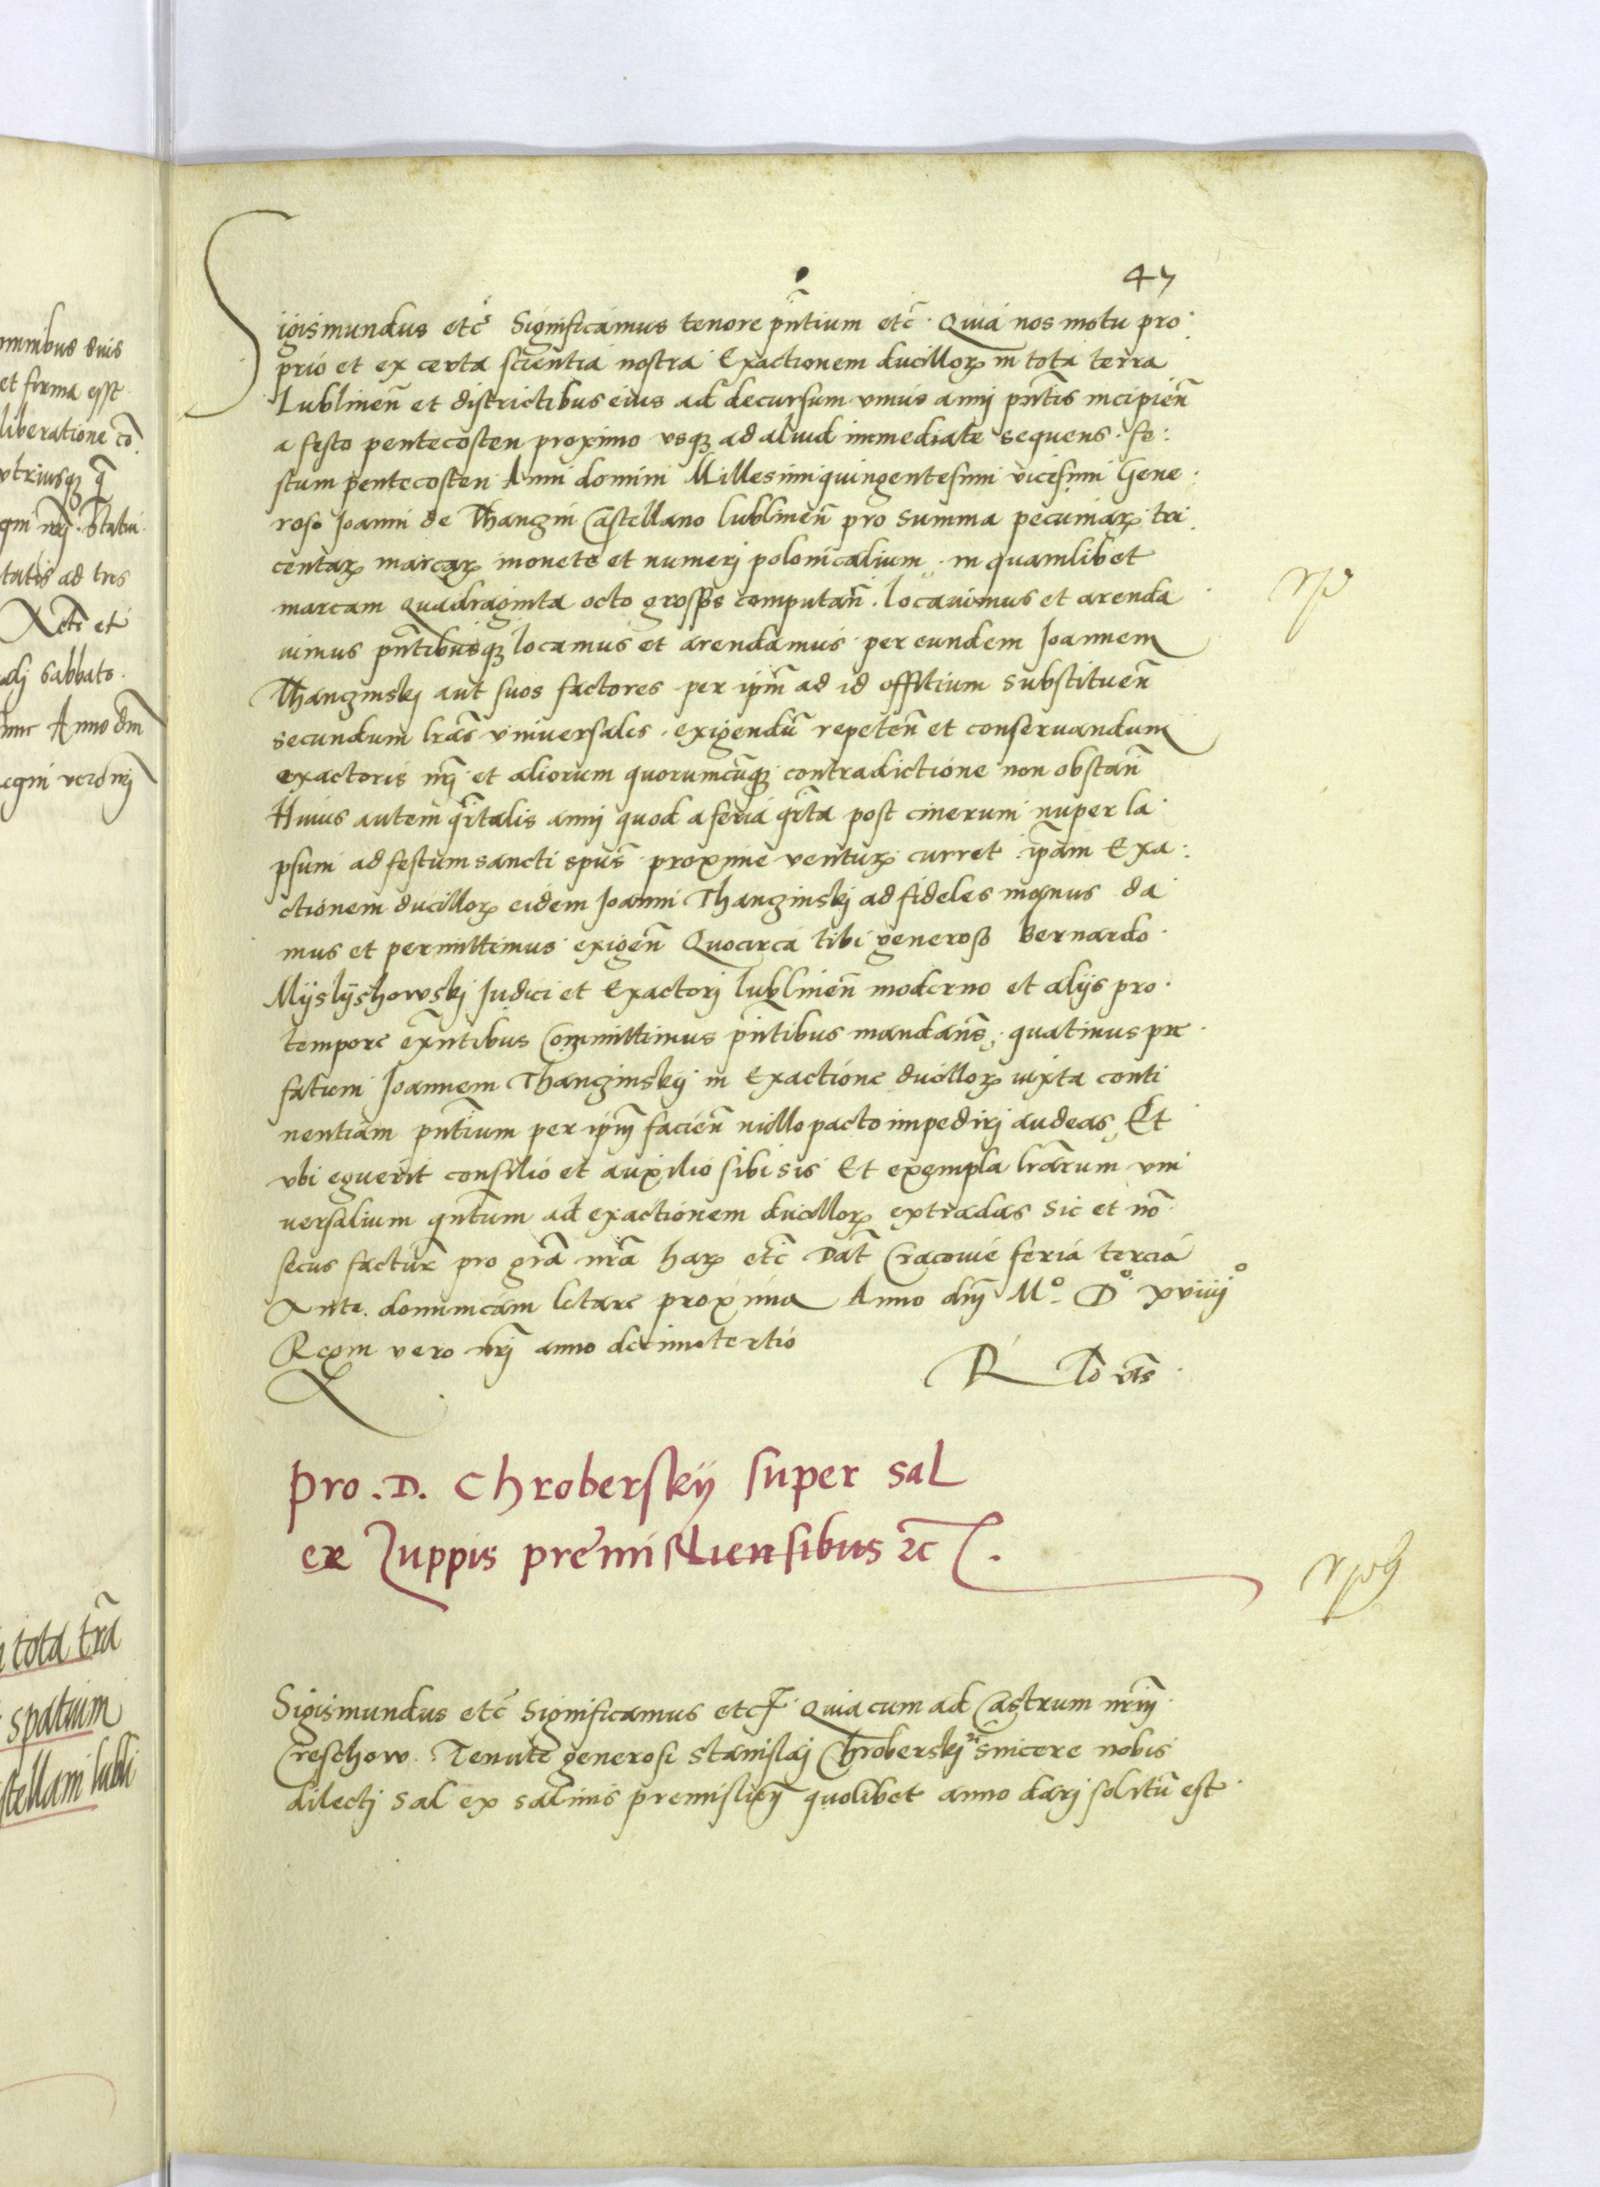 mmibus suis
et forma esst
liberatione cō
vtriusqꝫ q̄
statui
tatis ad tres
et
dj sabbato
Anno dm̄
tota tr̄a
spatium
stellani lubli
47
Sigismundus etc̄ Significamus tenore pn̄tium etc̄ · Quia nos motu pro ·
prio et ex certa scientia nostra Exactionem ducilloꝝ in tota terra
Lublinen̄ et districtibus eius ad decursum vnius annj pn̄tis incipien̄
a festo pentecosten proximo vsqꝫ ad aliud immediate sequens · fe :
stum pentecosten Anni domini Millesimiquingentesimi vicesimi Gene ·
roso Joanni de Thanczin Castellano lublinen̄ pro summa pecuniaꝝ tri ·
centaꝝ marcaꝝ monete et numerj polonicalium · in quamlibet
marcam Quadraginta octo grossos computan̄ · locauimus et arenda ·
uimus pn̄tibusqꝫ locamus et arendamus · per eundem Joannem
Thanczinskj aut suos factores per ipm̄ ad id offitium substituen̄
secundum lr̄as vniuersales · exigendū repeten̄ et conseruandum
exactoris nr̄j et aliorum quorumcūqꝫ contradictione non obstan̄
Huius autem qr̄talis annj quod a feria qr̄ta post cinerum nuper la ·
psum ad festum sancti spūs · proxime venturꝫ curret · ip̄am Exa :
ctionem ducilloꝝ eidem Joanni Thanczinskj ad fideles manus da
mus et permittimus · exigen̄ Quocirca tibi generoso Bernardo ·
Mÿslÿschowskj Judici et Exactorj lublinen̄ moderno et alijs pro ·
tempore exn̄tibus Committimus pn̄tibus mandan̄s · quatinus pre ·
fatum Joannem Thanczinskÿ in Exactione ducilloꝝ iuxta conti
nentiam pn̄tium per ipm̄ facien̄ nullo pacto impedirj audeas, Et ·
vbi eguerit consilio et auxilio sibi sis Et exempla lr̄arum vni
uersalium qn̄tum ad exactionem ducilloꝝ extradas Sic et nō ·
secus facturꝫ pro gr̄a nr̄a haꝝ etc̄ Dat̄ Cracouie feria tercia
Ante · dominicam letare proxima Anno dn̄j M° · D° xviiij°
Regnj vero nr̄j anno decimotertio
R
Pro . D . Chroberskÿ super sal
ex Zuppis premisliensibus ꝛc̄ .
Sigismundus etc̄ Significamus etc̄ · Quia cum ad Castrum nr̄m̄ ·
Creschow · Tenute generosi Stanislaj Chroberskj sincere nobis
dilectj Sal ex salinis premislien̄ quolibet anno darj solitū est ·